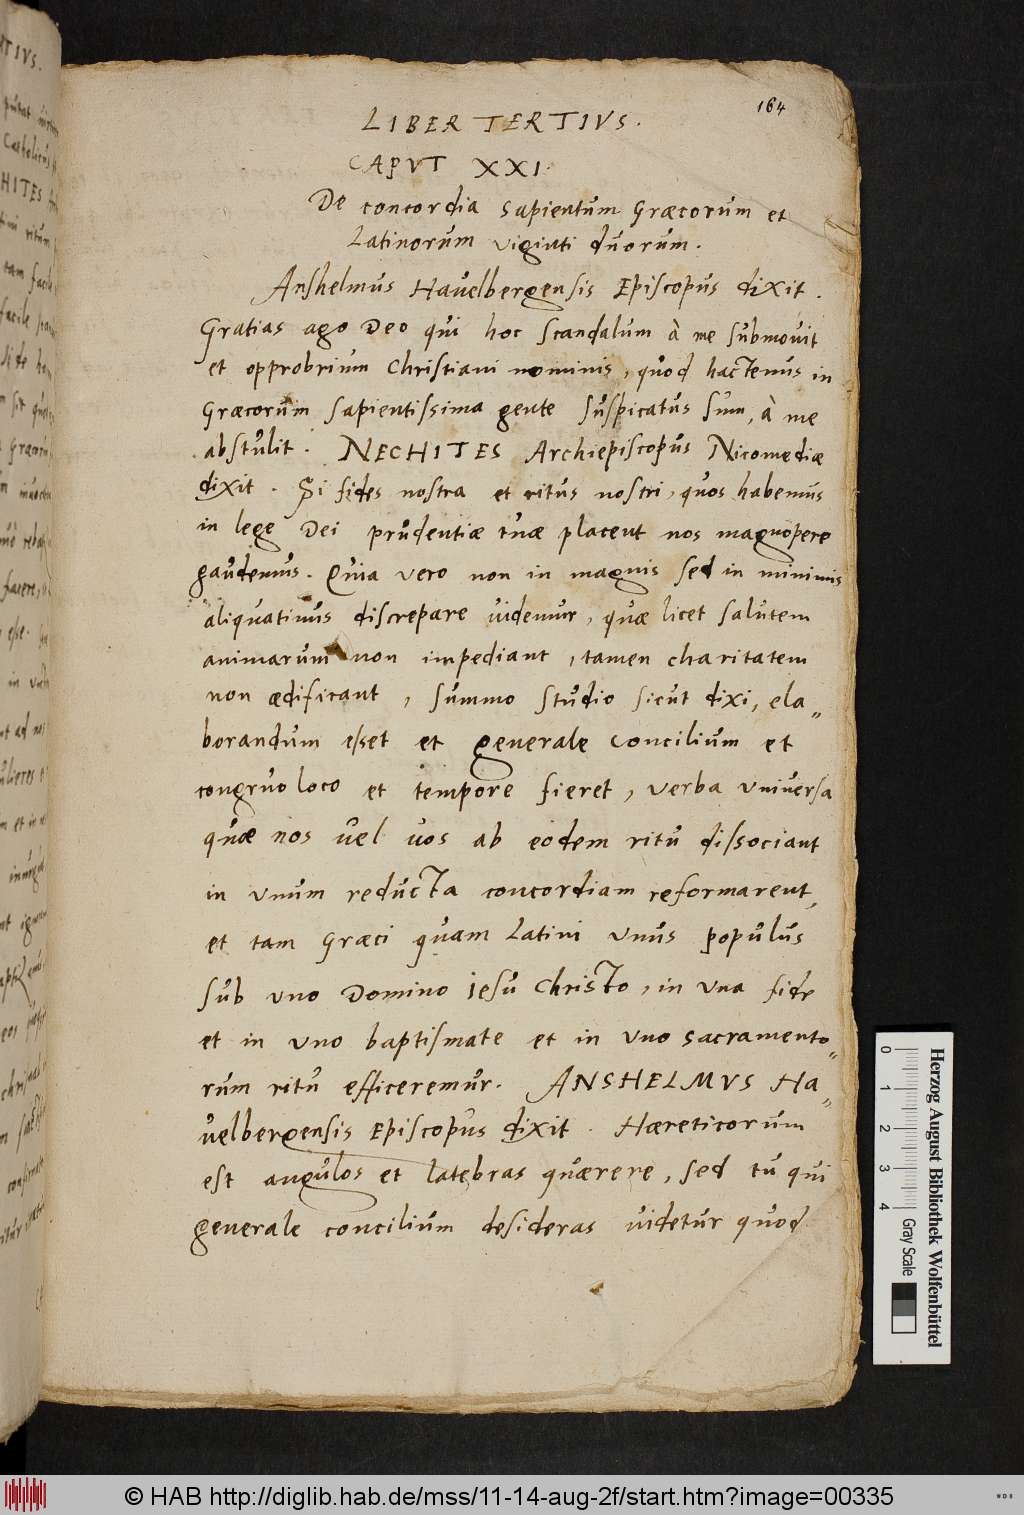 164
LIBER TERTIVS.
CAPVT XXI.
De concordia sapientum Græcorum et
Latinorum viginti duorum.
Anshelmus Havelbergensis Episcopus dixit.
Gratias ago Deo qui hoc scandalum à me submovit
et opprobrium Christiani nominis, quod hactenus in
Græcorum sapientissima gente suspicatus sum, à me
abstulit. NECHITES Archiepiscopus Nicomediæ
dixit. Si fides nostra et ritus nostri, quos habemus
in lege Dei prudentiæ tuæ placent nos magnopere
gaudemus. Quia vero non in magnis sed in minimis
aliquatinus discrepare videmur, quæ licet salutem
animarum non impediant, tamen charitatem
non ædificant, summo studio sicut dixi, ela„
borandum esset et generale concilium et
congruo loco et tempore fieret, verba universa
quæ nos vel vos ab eodem ritu dissociant
in unum reducta concordiam reformarent,
et tam Græci quam Latini unus populus
sub uno Domino Iesu Christo, in una fide
et in uno baptismate et in uno sacramento„
rum ritu efficeremur. ANSHELMVS Ha„
velbergensis Episcopus dixit. Hæreticorum
est angulos et latebras quærere, sed tu qui
generale concilium desideras videtur quod
0 1 2 3 4
Gray Scale
Herzog August Bibliothek Wolfenbüttel
© HAB http://diglib.hab.de/mss/11-14-aug-2f/start.htm?image=00335
WDB